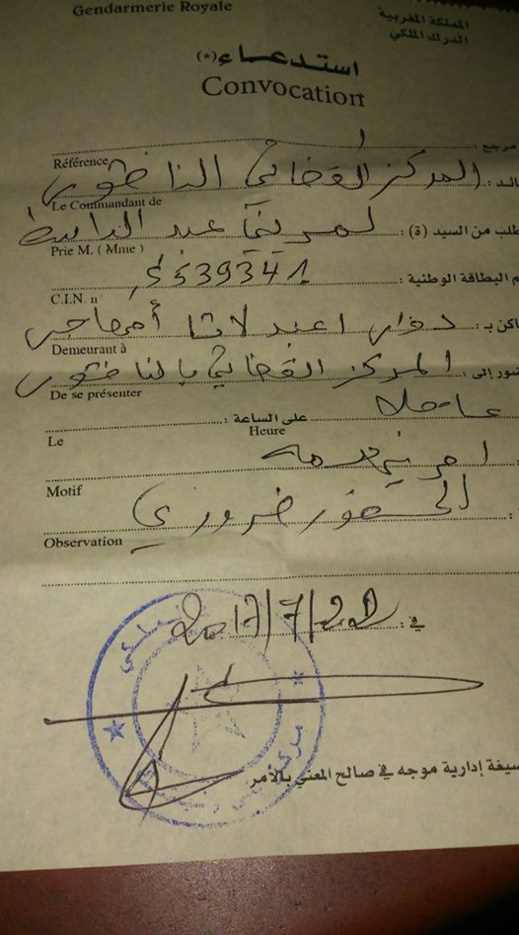 Gendarmerie Royale
المملكة المغربية
الدرك الملكي
استدعاء (*)
Convocation
مرجع :
Référence
المركز القضائي الناظور
Le Commandant de
طلب من السيد (ة) : لمريني عبد
Prie M. ( Mme )
م البطاقة الوطنية : S539341
C.I.N. n
اكن بـ : دوار
Demeurant à
ضور إلى : المركز القضائي بالناظور
De se présenter
عاجلا
على الساعة :
Le
Heure
امر يخصه
Motif
الحضور ضروري
Observation
في : 2017/7/22
سيغة إدارية موجه في صالح المعني بالأمر